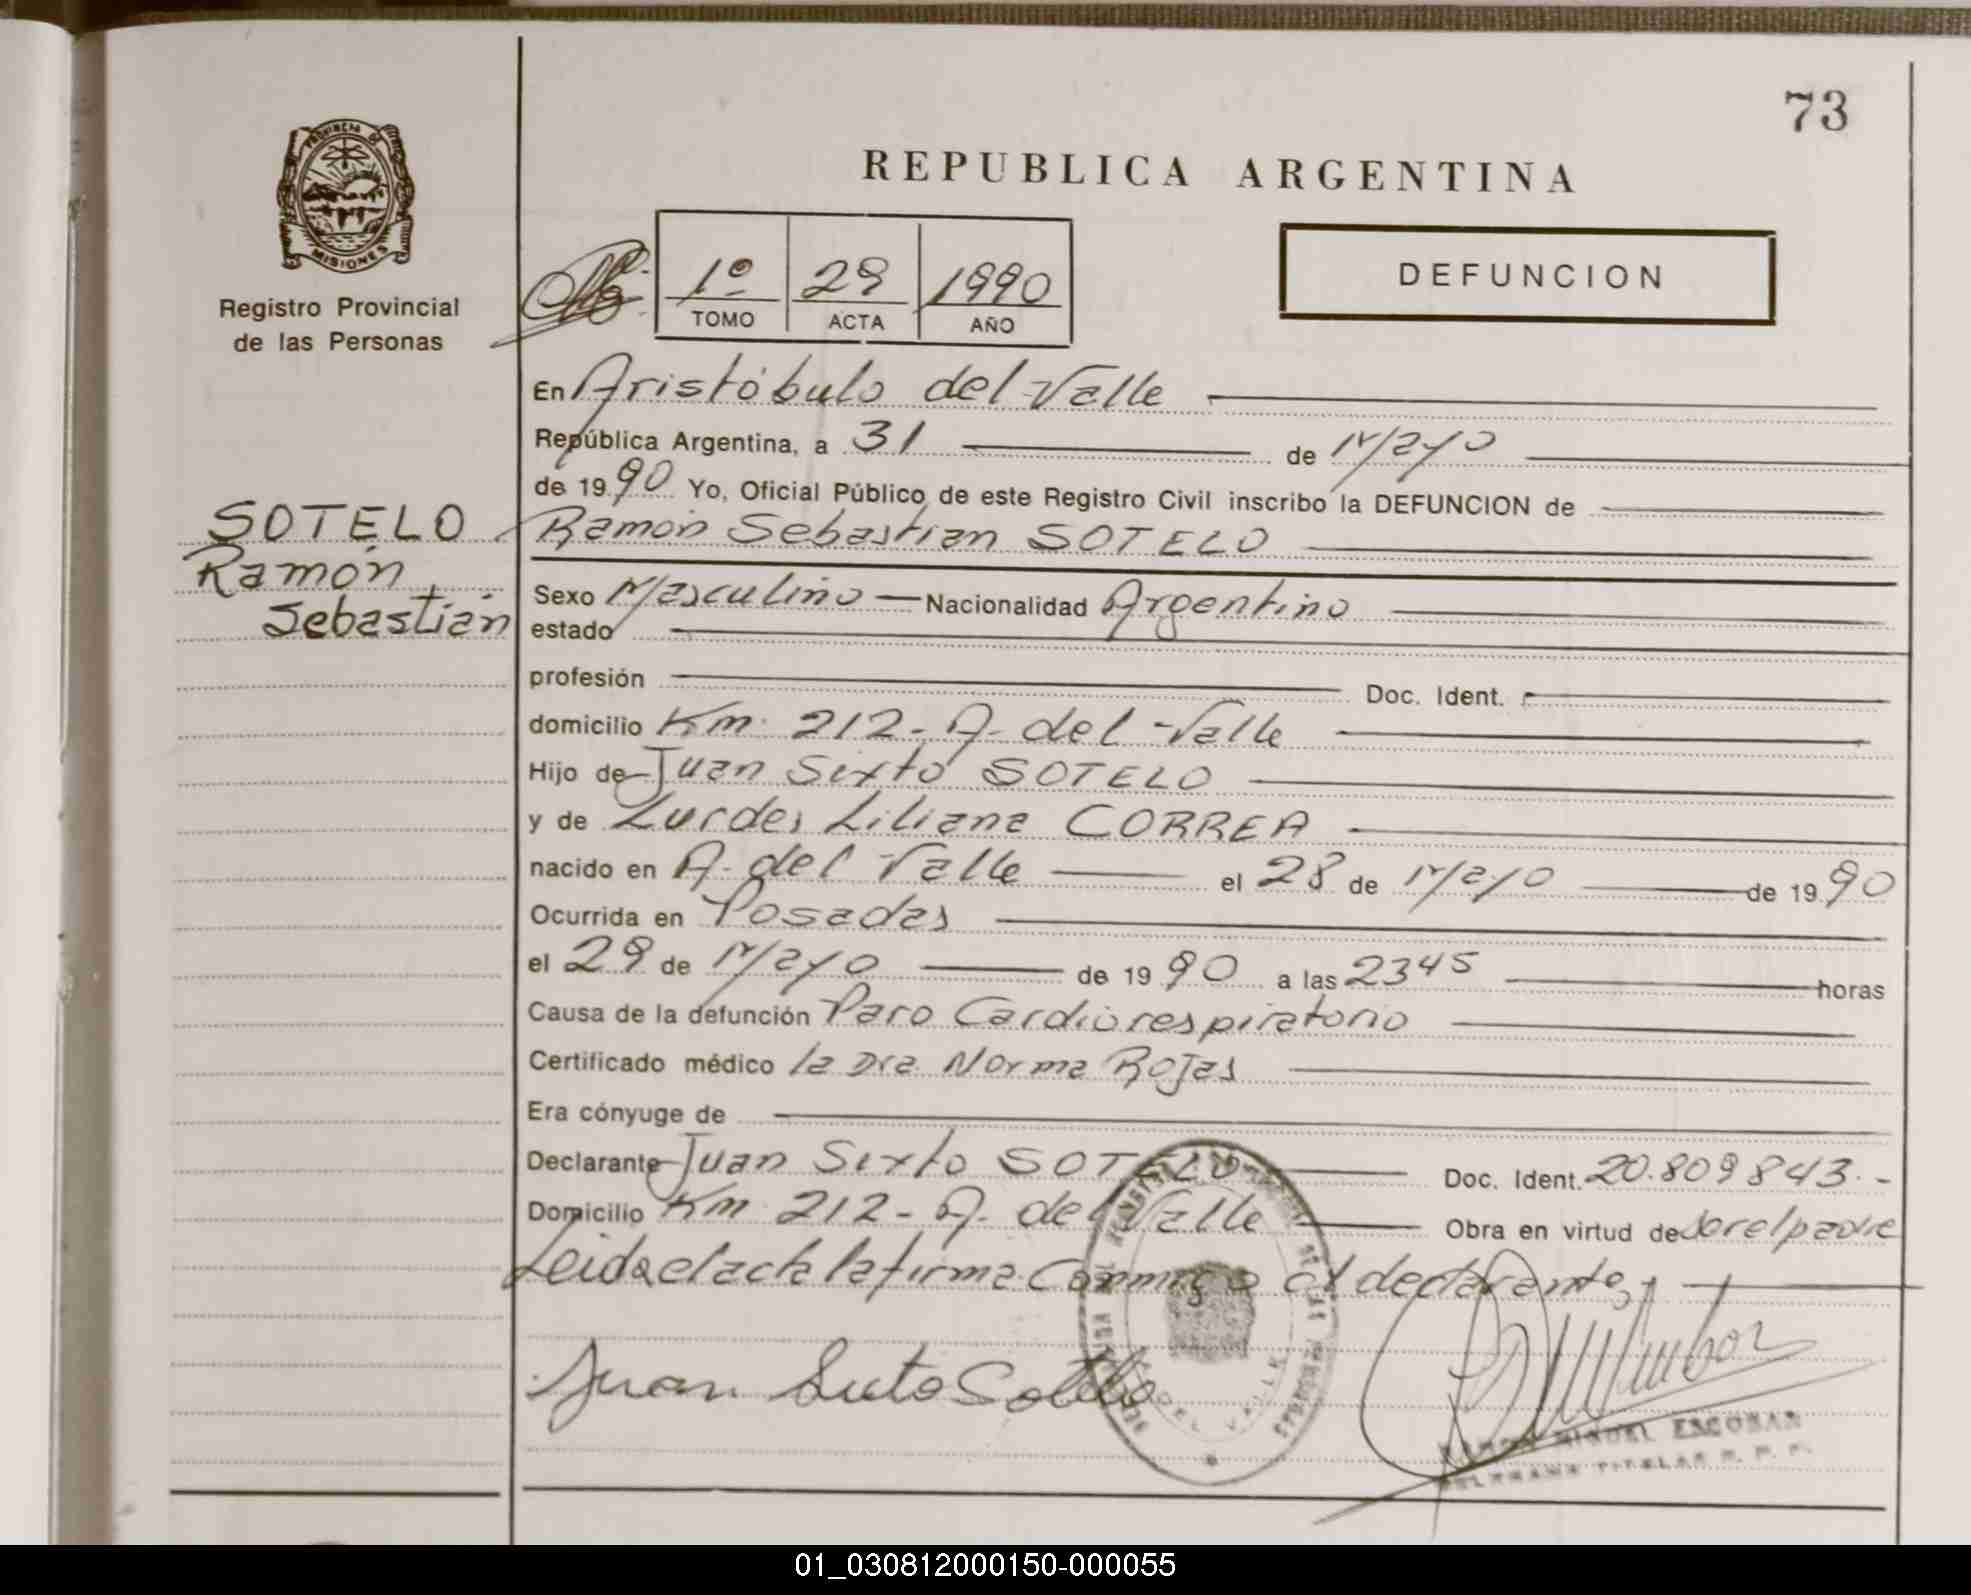 73
REPUBLICA ARGENTINA
PROVINCIA DE
MISIONES
Registro Provincial
de las Personas
1º 29 1990
TOMO ACTA AÑO
DEFUNCION
En Aristóbulo del Valle
República Argentina, a 31 de Mayo
de 1990 Yo, Oficial Público de este Registro Civil inscribo la DEFUNCION de
SOTELO
Ramón
Sebastián
Ramón Sebastian SOTELO
Sexo Masculino Nacionalidad Argentino
estado
profesión Doc. Ident.
domicilio Km. 212 - A. del Valle
Hijo de Juan Sixto SOTELO
y de Lurdes Liliana CORREA
nacido en A. del Valle el 28 de Mayo de 1990
Ocurrida en Posadas
el 29 de Mayo de 1990 a las 23 45 horas
Causa de la defunción Paro Cardiorespiratorio
Certificado médico la Dra. Norma Rojas
Era cónyuge de
Declarante Juan Sixto SOTELO Doc. Ident. 20.809843.-
Domicilio Km 212 - A. del Valle Obra en virtud de ser el padre
Leida el acta la firma Conmigo el declarante
Juan Sixto Sotelo
RAMON MIGUEL ESCOBAR
TITULAR R. P. P.
01_030812000150-000055